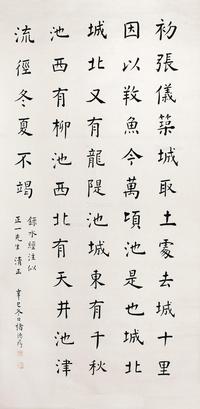 初張儀築城取土處去城十里
因以𢼝魚今萬頃池是也城北
城北又有龍隄池城東有千秋
池西有柳池西北有天井池津
流徑冬夏不竭
錄水經注似
正一先生清正
辛巳冬日